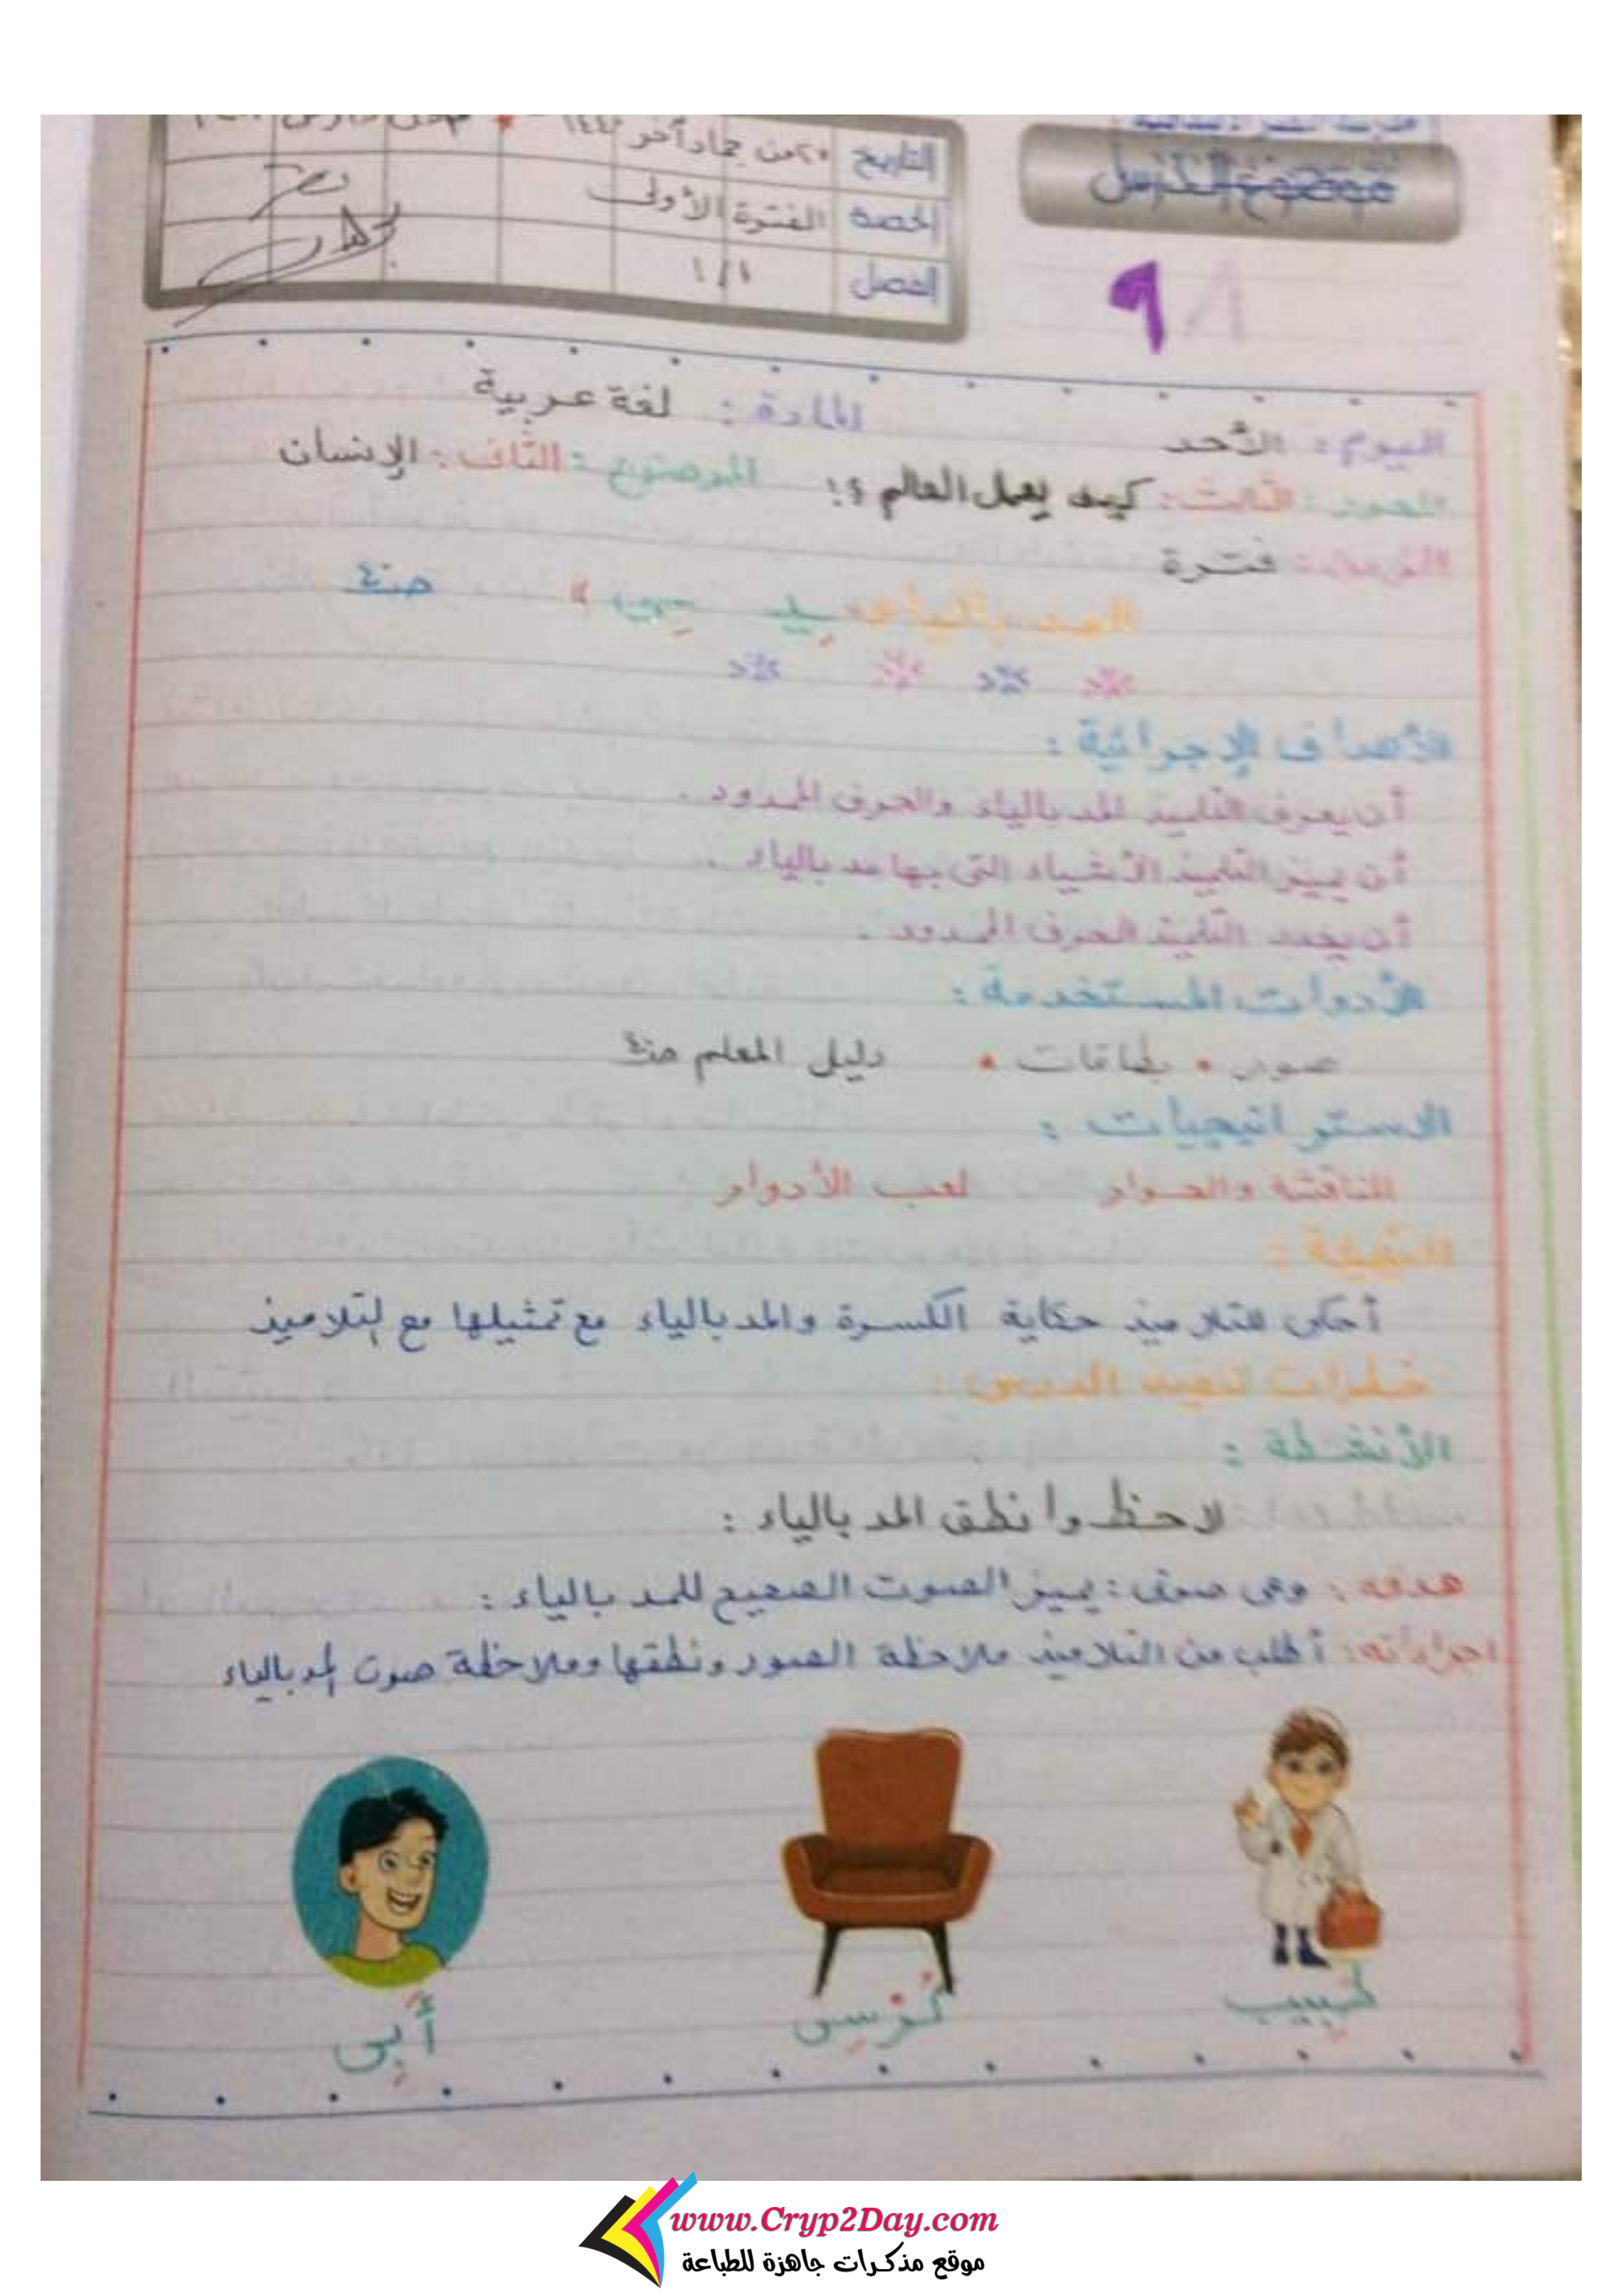 التاريخ ٢٥ من جماد آخر ١٤٤
موضوع الدرس
الحصة الفترة الأولى
الفصل ١/١
٩
اليوم : الأحد المادة : لغة عربية
المحور : الثالث : كيف يعمل العالم ؟! الموضوع : الثاني : الإنسان
فترة
المد بالياء " ـيـ ـي " صـ٤
الأهداف الإجرائية :
أن يعرف التلميذ المد بالياء والحرف الممدود .
أن يميز التلميذ الأشياء التى بها مد بالياء .
أن يحدد التلميذ الحرف الممدود .
الأدوات المستخدمة :
صور • بطاقات • دليل المعلم صـ٤
الاستراتيجيات :
المناقشة والحوار لعب الأدوار
التهيئة :
أحكى للتلاميذ حكاية الكسرة والمد بالياء مع تمثيلها مع التلاميذ
خطوات تنفيذ الدرس :
الأنشطة :
لاحظ وانطق المد بالياء :
هدفه : وعى صوتى : يميز الصوت الصحيح للمد بالياء :
اجراءاته : أطلب من التلاميذ ملاحظة الصور ونطقها وملاحظة صوت المد بالياء
طَبِيب كُرْسِى أَبِى
www.Cryp2Day.com
موقع مذكرات جاهزة للطباعة